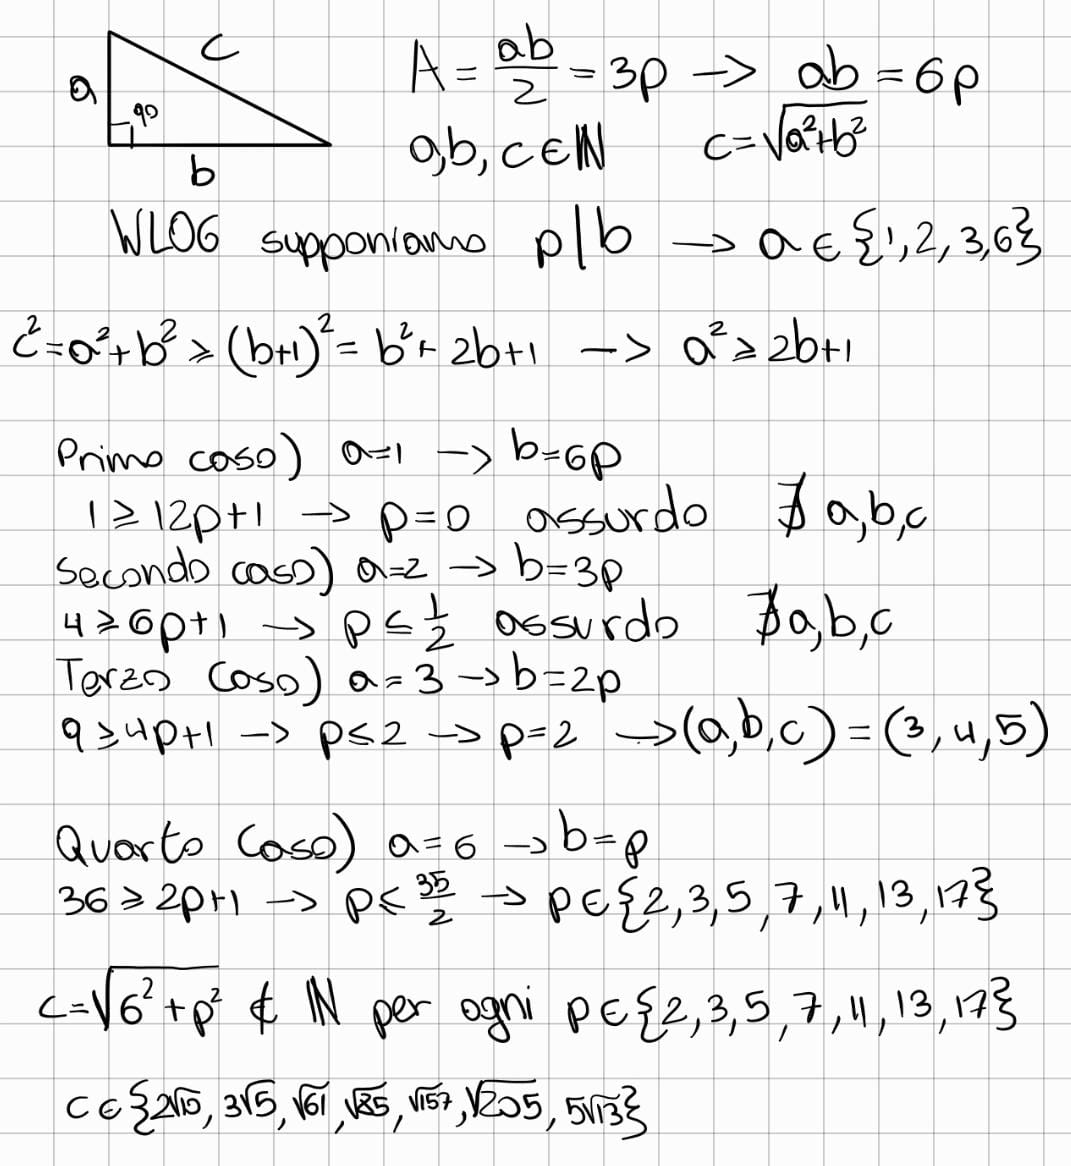 a
c
90
b
A = ab/2 = 3p -> ab = 6p
a,b,c ∈ ℕ c = √a²+b²
WLOG supponiamo p|b -> a ∈ {1,2,3,6}
c² = a²+b² ⩾ (b+1)² = b²+2b+1 -> a² ⩾ 2b+1
Primo caso) a=1 -> b=6p
1 ⩾ 12p+1 -> p=0 assurdo ∄ a,b,c
Secondo caso) a=2 -> b=3p
4 ⩾ 6p+1 -> p ≤ 1/2 assurdo ∄ a,b,c
Terzo caso) a=3 -> b=2p
9 ⩾ 4p+1 -> p ≤ 2 -> p=2 -> (a,b,c) = (3,4,5)
Quarto caso) a=6 -> b=p
36 ⩾ 2p+1 -> p ≤ 35/2 -> p ∈ {2,3,5,7,11,13,17}
c = √6²+p² ∉ ℕ per ogni p ∈ {2,3,5,7,11,13,17}
c ∈ {2√10, 3√5, √61, √85, √157, √205, 5√13}